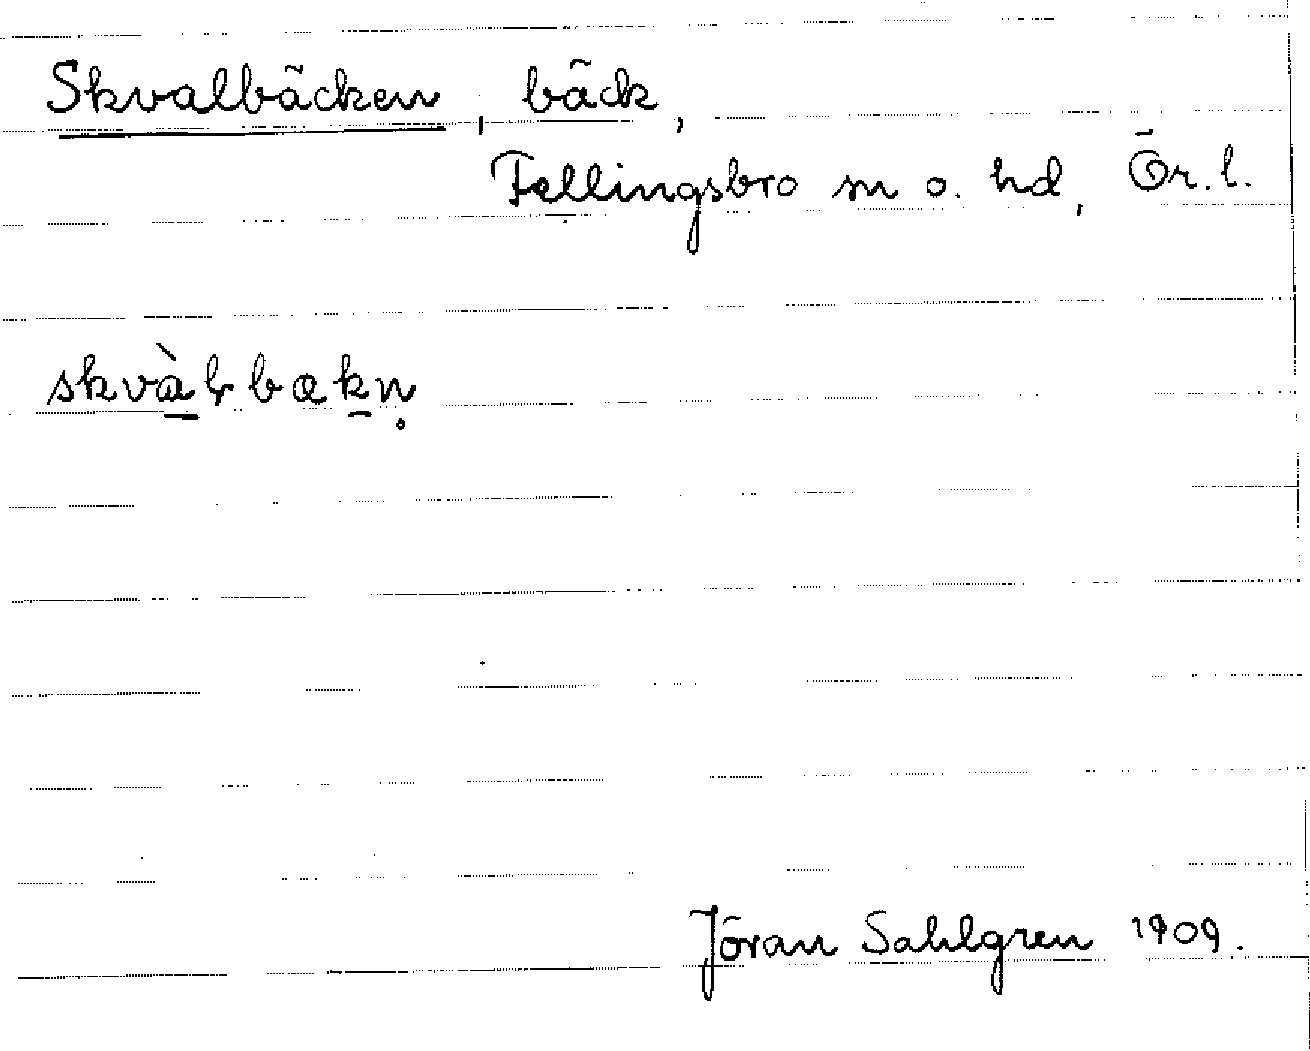 Skvalbäcken, bäck,
Fellingsbro sn o. hd, Ör. l.
skvàɫbækn̥
Jöran Sahlgren 1909.